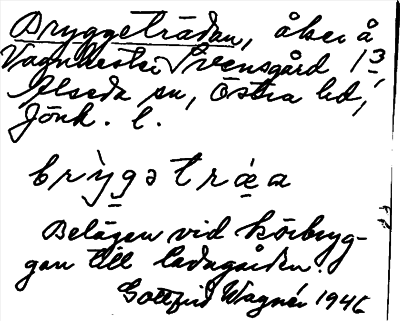 Bryggeträdan, åker å
Vagnhester Svensgård 13,
Alseda sn, Östra hd,
Jönk. l.
brỳgə træ̀a
Belägen vid körbryg-
gan till ladugården.
Gottfrid Wagnér 1946